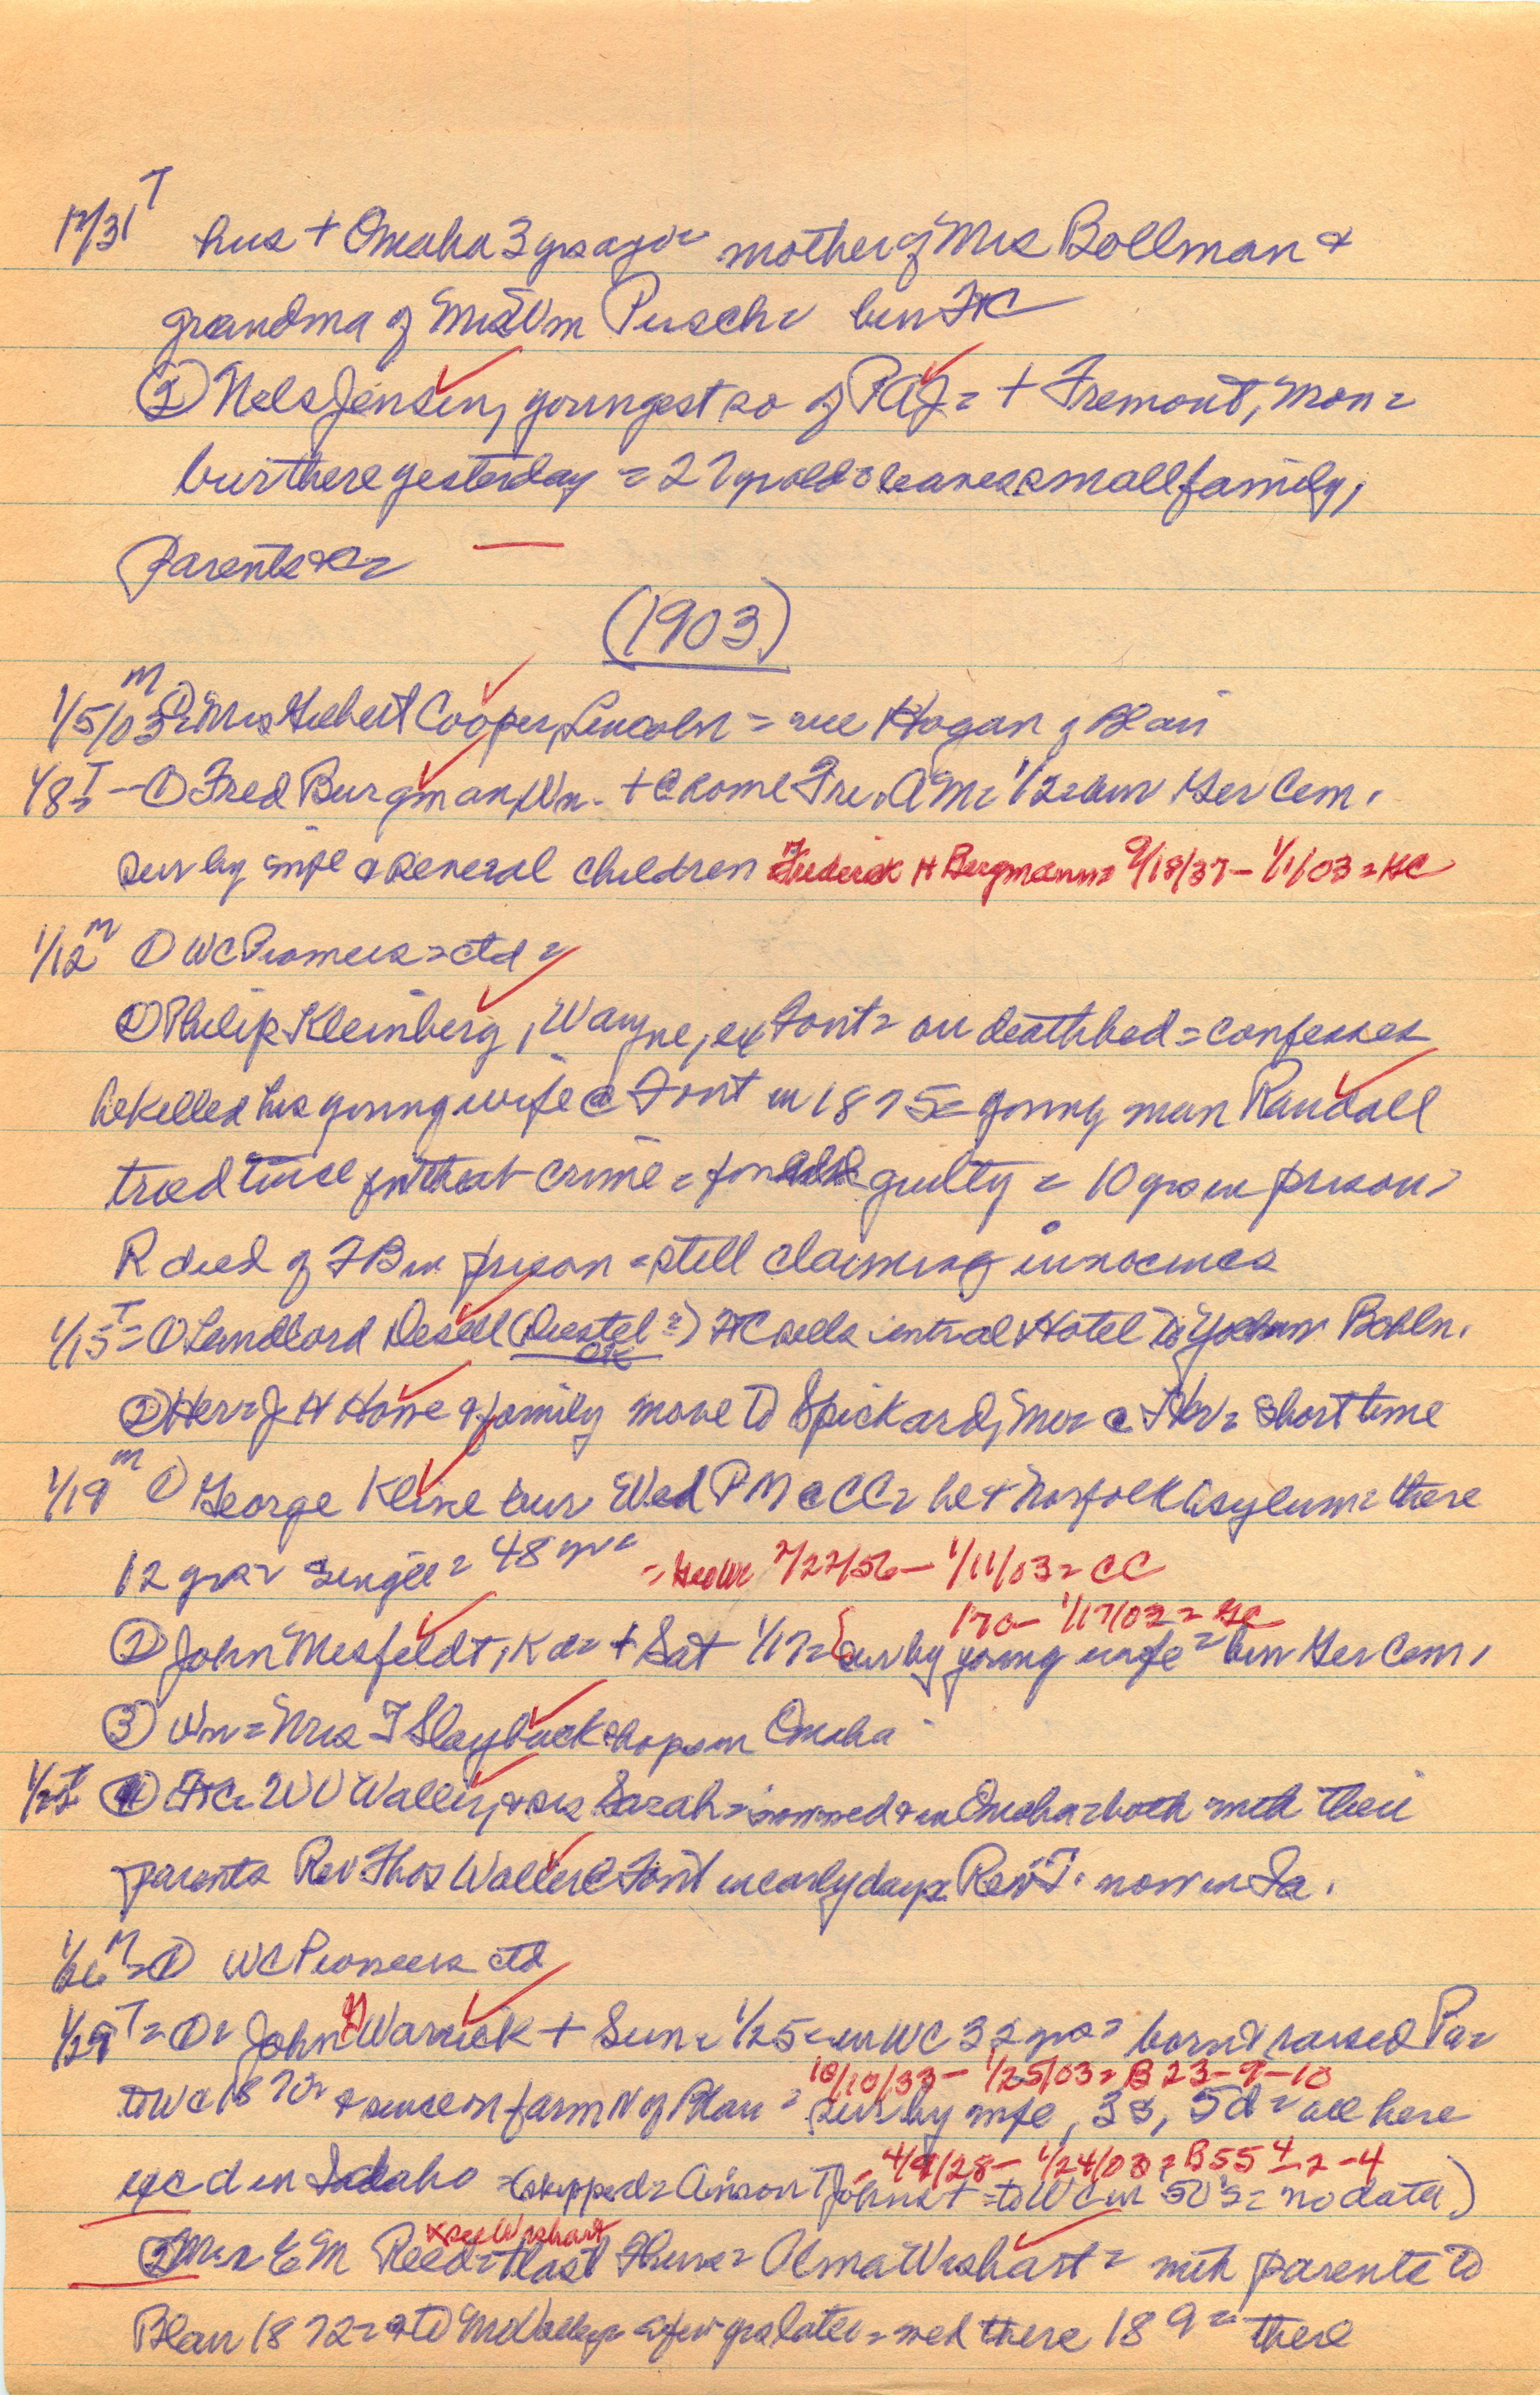 12/31 T hus + Omaha 3 yrs ago = mother of Mrs Bollman &
grandma of Mrs Wm Pusch = bur FtC
② Nels Jensen, youngest so of PAJ = + Fremont, Mon =
bur there yesterday = 27 yr old = leaves small family,
parents &c =
(1903)
1/5/03 M ① = Mrs Hubert Cooper, Lincoln = nee Hogan of Blair
1/8 T = — ① Fred Burgman, Wn. + @ home Fri. AM = 1/2 = bur Ger Cem.
sur by wife & several children Frederick H Bergmann = 9/18/37 – 1/1/03 = GC
1/12 M ① WC Pioneers = ctd =
② Philip Kleinberg, Wayne, ex Font = on deathbed = confesses
he killed his young wife @ Font in 1875 = young man Randall
tried twice for that crime = found guilty = 10 yrs in prison =
R died of TB in prison = still claiming innocence
1/15 T = ① Landlord Desell (Diestel =) FtC sells Central Hotel to Bohln.
OK
② Her = J H Howe & family move to Spickard, Mo = @ Her = short time
1/19 M ① George Kline bur Wed PM @ CC = he + Norfolk Asylum = there
12 yrs = single = 48 yr = = 7/27/56 – 1/11/03 = CC
170 – 1/17/03 = GC
② John Mesfeldt, Kd = + Sat 1/17 = sur by young wife = bur Ger Cem.
③ Wn = Mrs T Slayback shops in Omaha
① FtC = W V Waller, & sis Sarah = & in Omaha = both with their
parents Rev Thos Waller @ Font in early days = Rev T. now in Ia.
1/26 M = ① WC Pioneers ctd
1/29 T = ① = John H Warrick + Sun = 1/25 = in WC 32 yrs = born & raised Pa =
10/10/33 – 1/25/03 = B 23-9-10
to WC 1870 = & since on farm N of Blair = sur by wife, 3s, 5d = all here
4/9/28 – 1/24/03 = B55 4-2-4
exc d in Idaho = (skipped = Anson T Johns + = to WC in 50's = no data)
x see Wishart
② Mrs E M Reed = + last Thurs = Alma Wishart = with parents to
Blair 1872 = & to Mo Valley = a few yrs later = wed there 189 = there